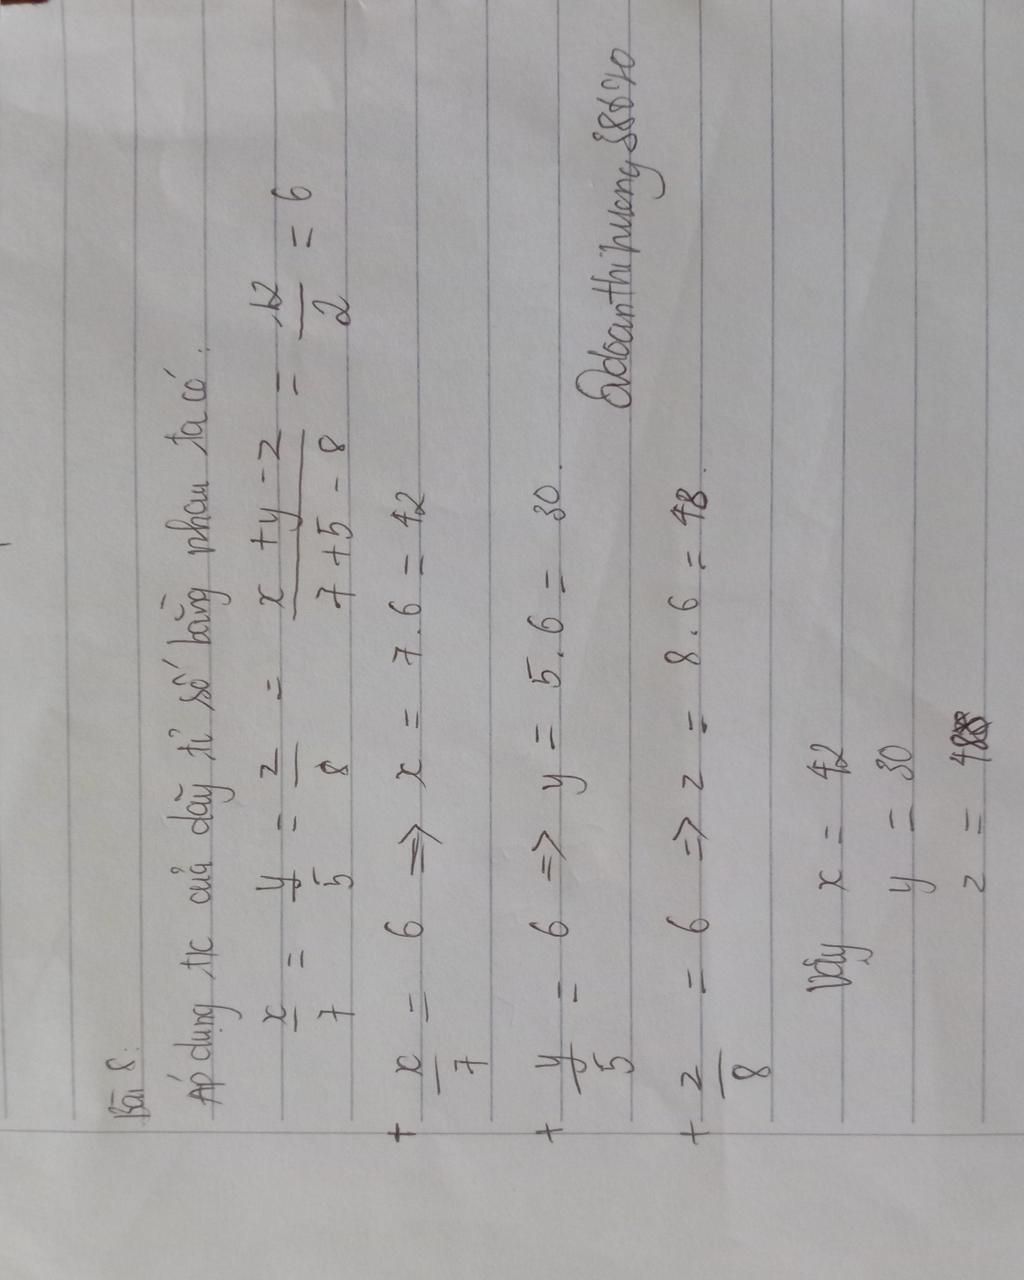 Bài 8:
Áp dụng t/c của dãy tỉ số bằng nhau ta có:
x/7 = y/5 = z/8 = (x + y - z)/(7 + 5 - 8) = 12/2 = 6
+ x/7 = 6 => x = 7.6 = 42
+ y/5 = 6 => y = 5.6 = 30.
+ z/8 = 6 => z = 8.6 = 48.
Vậy x = 42
y = 30
z = 48